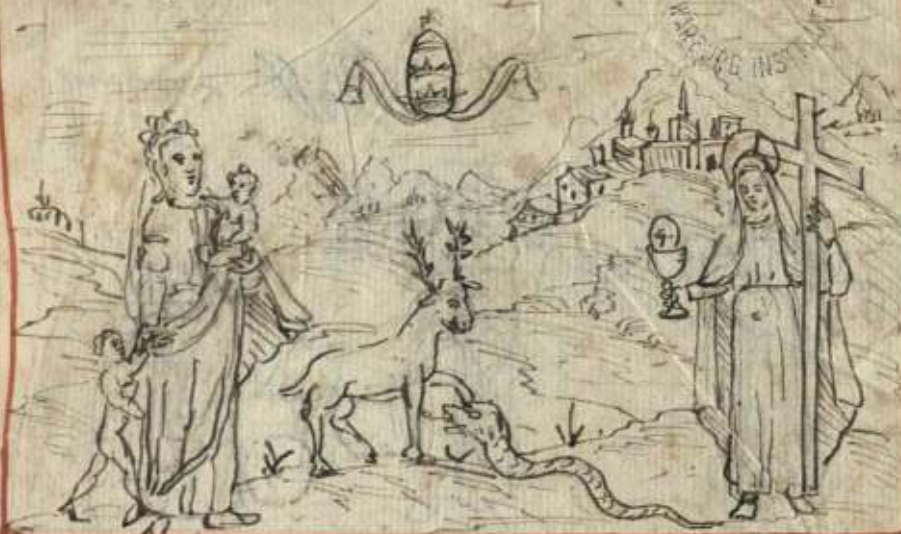 WARBURG INST